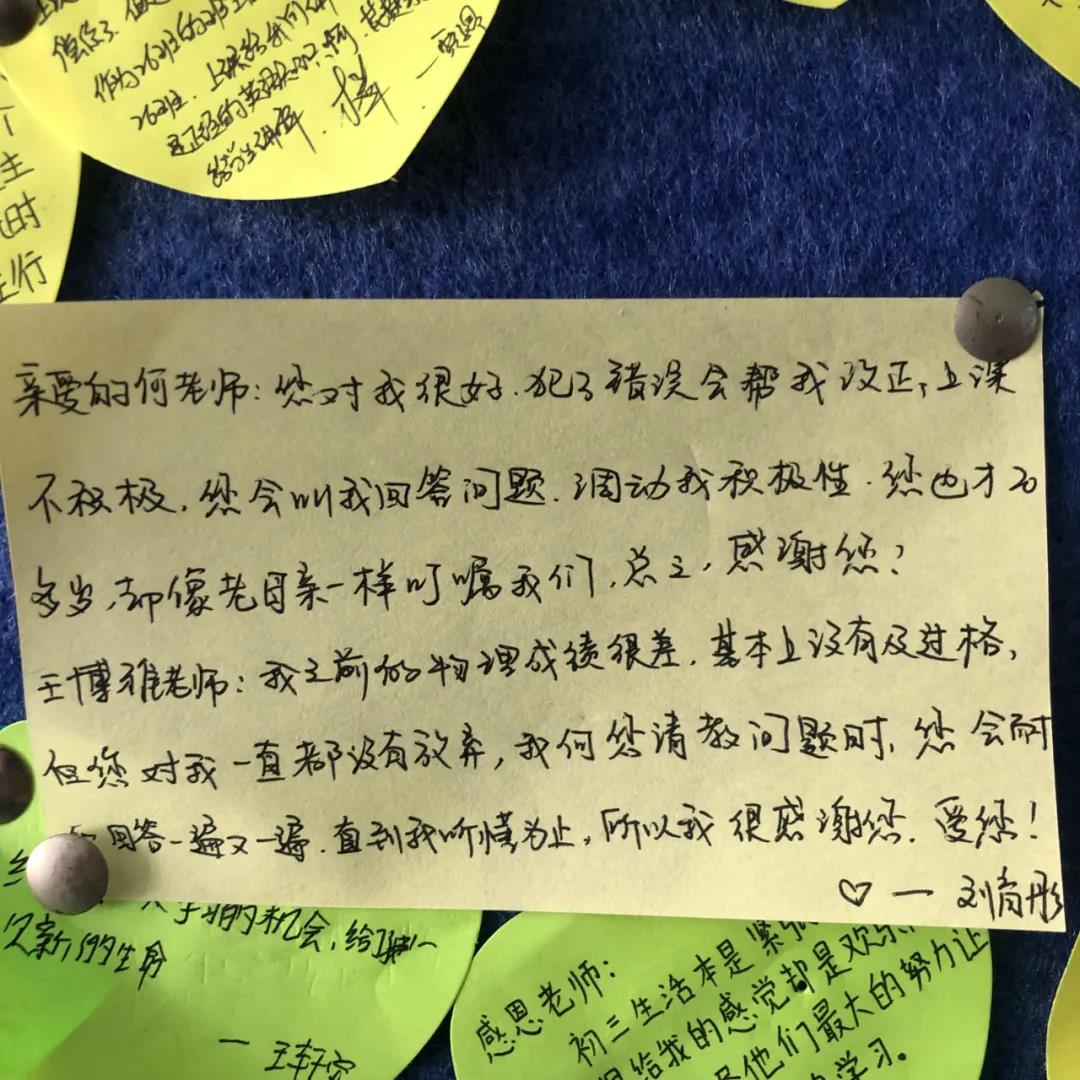 作为26班的
26班
给学生讲解
个
主
时
行
亲爱的何老师：您对我很好.犯了错误会帮我改正,上课
不积极,您会叫我回答问题.调动我积极性.您也才20
多岁,却像老母亲一样叮嘱我们,总之,感谢您!
王博雅老师:我之前的物理成绩很差.基本上没有及过格,
但您对我一直都没有放弃,我向您请教问题时,您会耐
回答一遍又一遍.直到我听懂为止,所以我很感谢您.爱您!
♡ 一 刘育彤
的机会,给了
新的生命
一 王轩宇
感恩老师：
初三生活本是紧
给我的感觉却是欢乐
他们最大的努力让
学习。